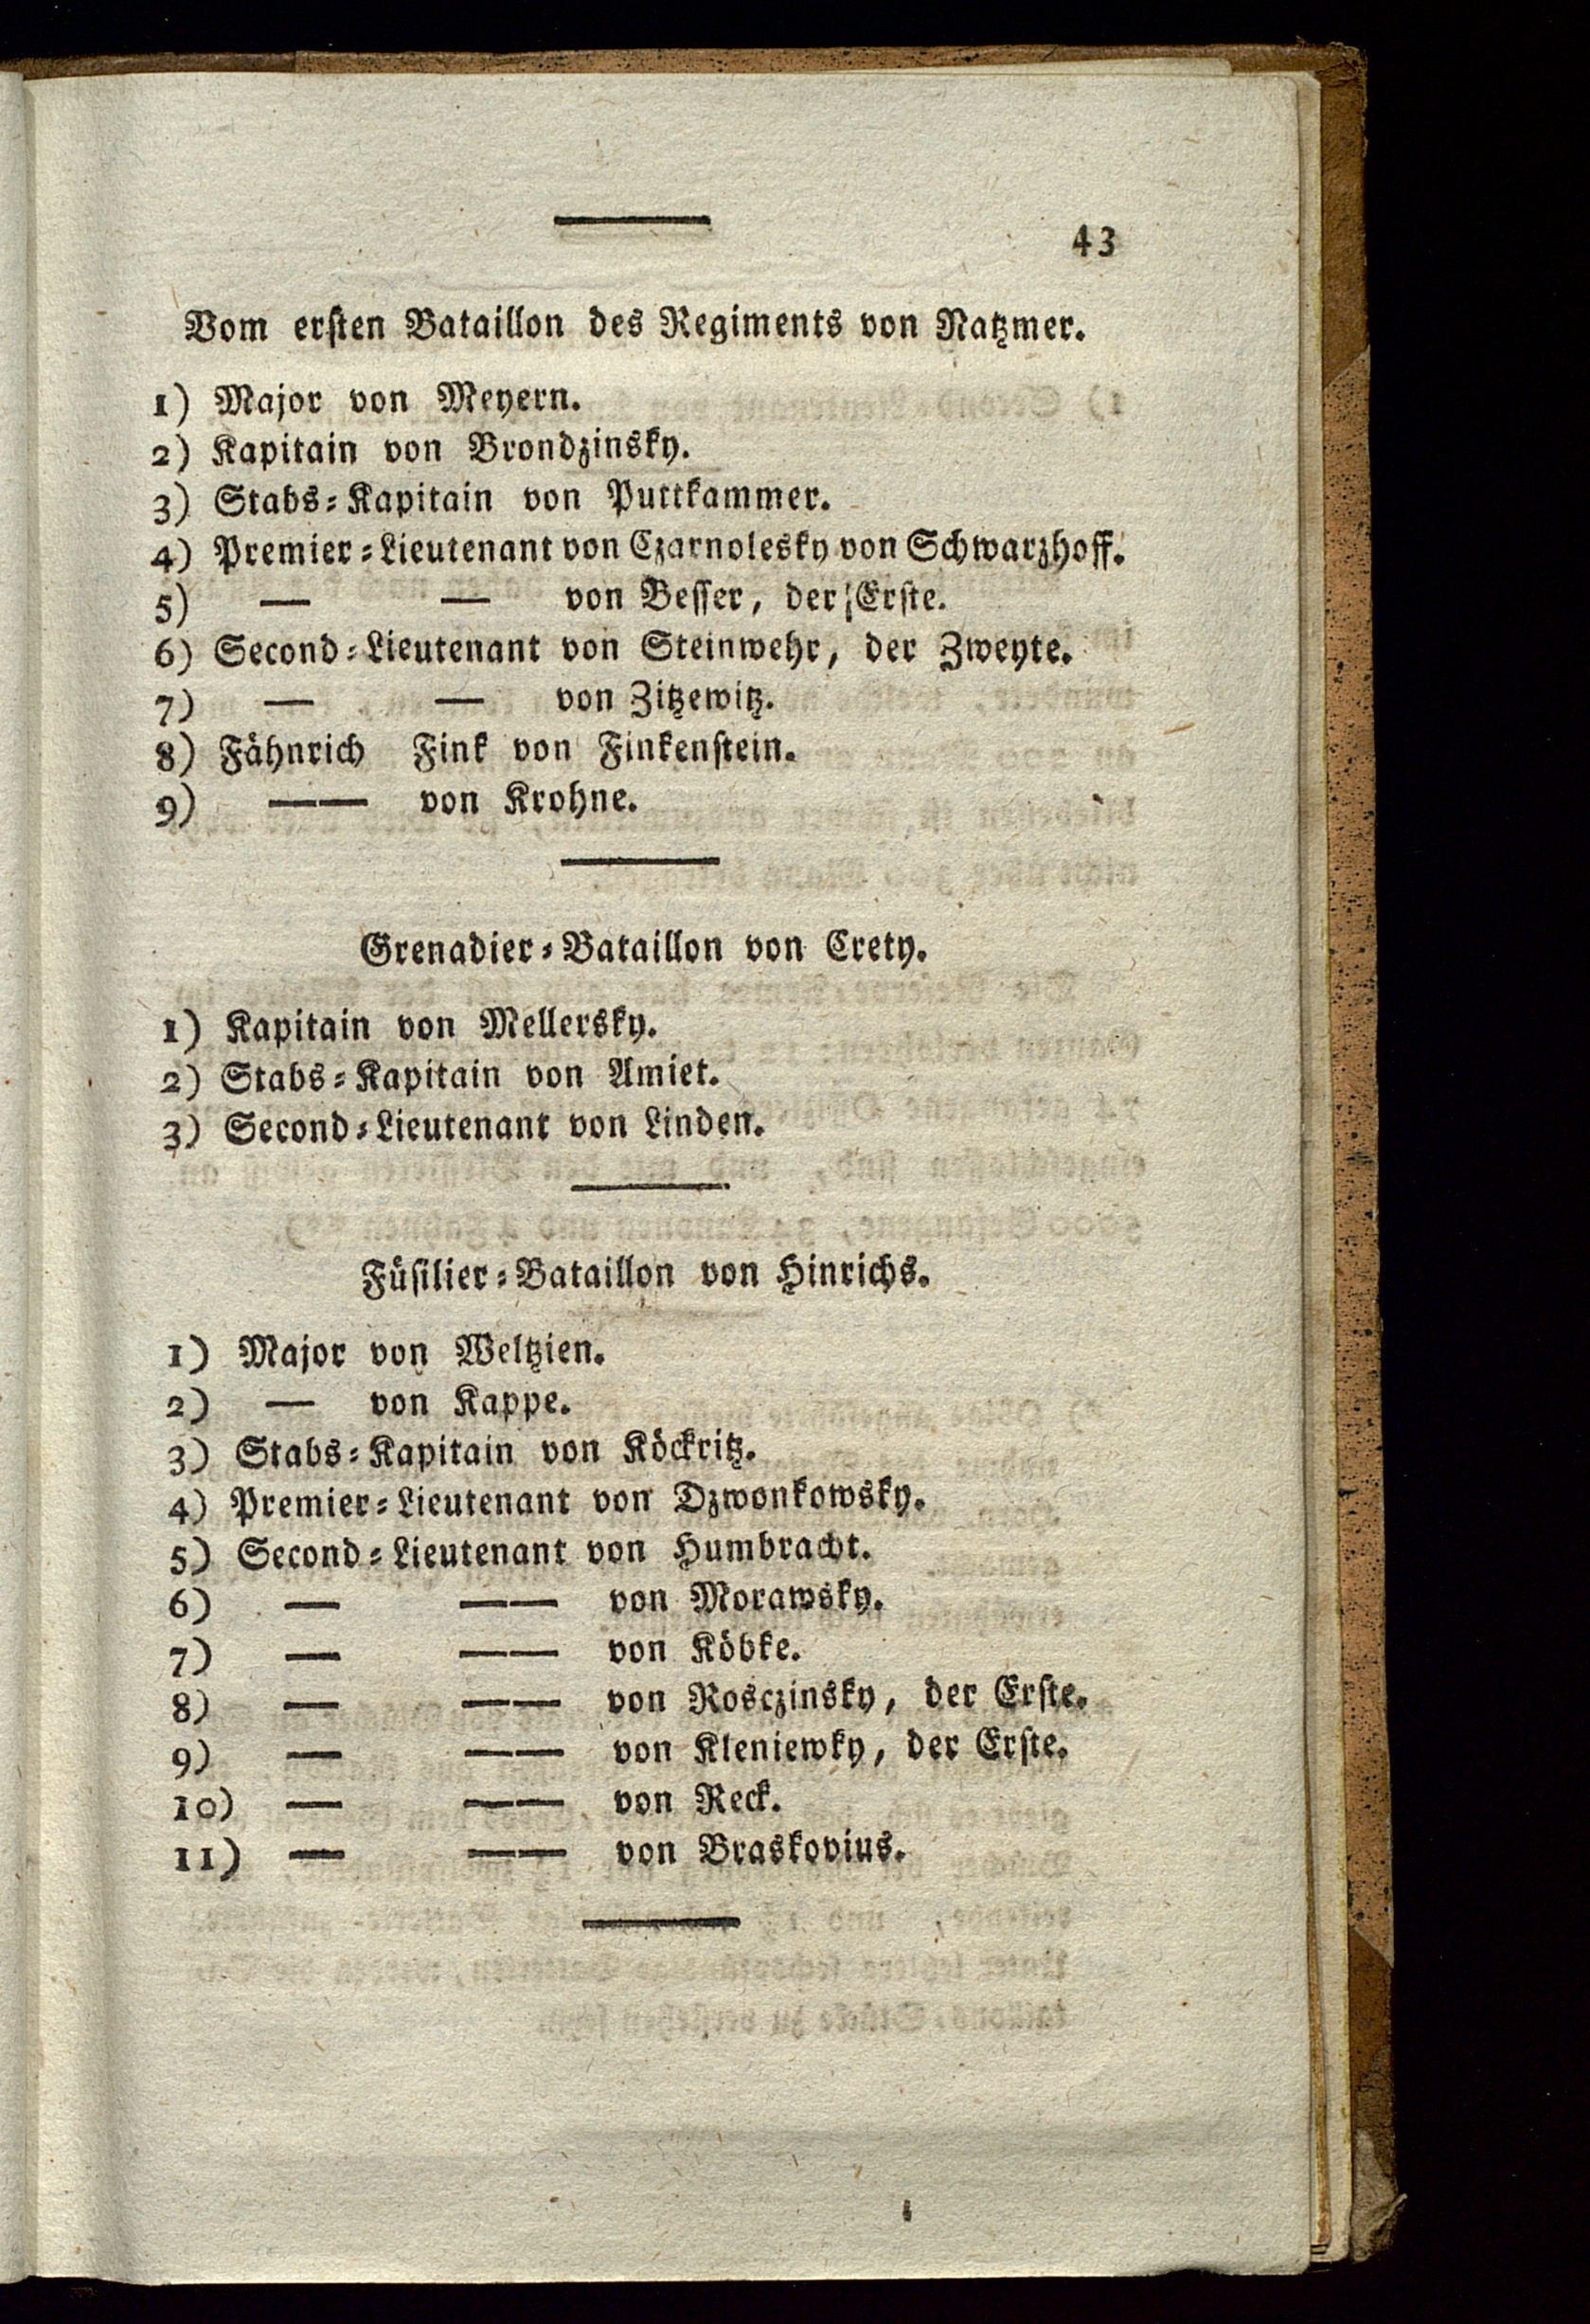 43
Vom ersten Bataillon des Regiments von Natzmer.
1) Major von Meyern.
2) Kapitain von Brondzinsky.
3) Stabs-Kapitain von Puttkammer.
4) Premier-Lieutenant von Czarnolesky von Schwarzhoff.
5) — — von Besser, der Erste.
6) Second-Lieutenant von Steinwehr, der Zweyte.
7) — — von Zitzewitz.
8) Fähnrich Fink von Finkenstein.
9) —— von Krohne.
Grenadier-Bataillon von Crety.
1) Kapitain von Mellersky.
2) Stabs-Kapitain von Amiet.
3) Second-Lieutenant von Linden.
Füsilier-Bataillon von Hinrichs.
1) Major von Weltzien.
2) — von Kappe.
3) Stabs-Kapitain von Köckritz.
4) Premier-Lieutenant von Dzwonkowsky.
5) Second-Lieutenant von Humbracht.
6) — —— von Morawsky.
7) — —— von Köbke.
8) — —— von Rosczinsky, der Erste.
9) — —— von Kleniewky, der Erste.
10) — —— von Reck.
11) — —— von Braskovius.